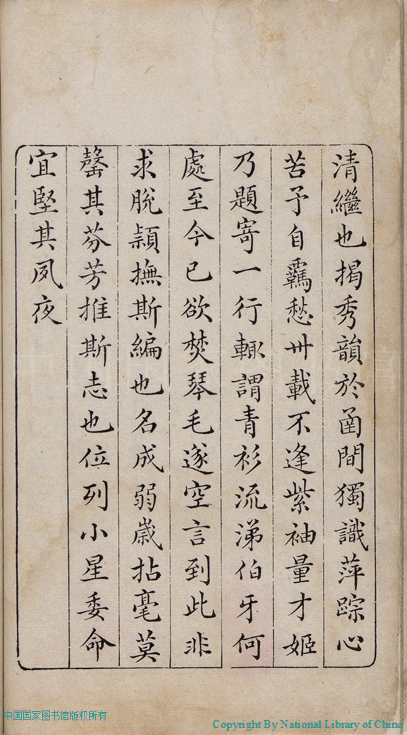 清繼也揭秀韻於凾間獨識萍踪心
苦予自羈愁卅載不逢紫袖量才姬
乃題寄一行輙謂青衫流涕伯牙何
處至今已欲焚琴毛遂空言到此非
求脫穎撫斯編也名成弱歲拈毫莫
罄其芬芳推斯志也位列小星委命
宜堅其夙夜
中国国家图书馆版权所有
Copyright By National Library of China